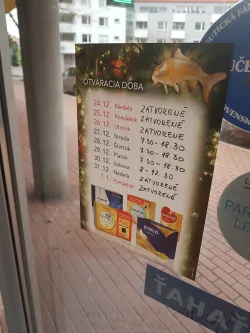 OTVÁRACIA DOBA
24.12. Nedeľa ZATVORENÉ
25.12. Pondelok ZATVORENÉ
26.12. Utorok ZATVORENÉ
27.12. Streda 7.30 - 18.30
28.12. Štvrtok 7.30 - 18.30
29.12. Piatok 7.30 - 18.30
30.12. Sobota 8 - 12.30
31.12. Nedeľa ZATVORENÉ
1.1. Pondelok ZATVORENÉ
ŤAHAŤ